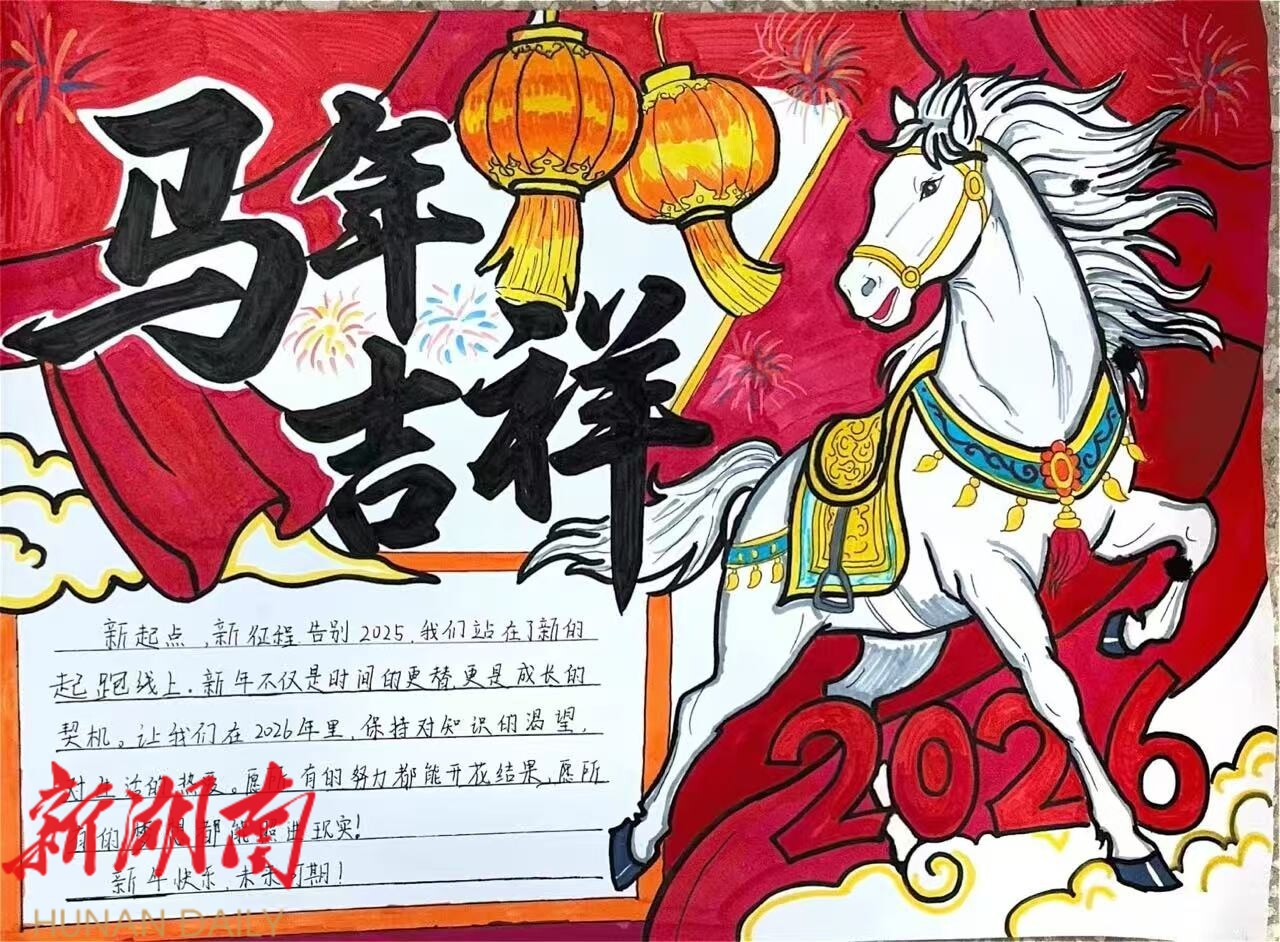 马年
吉祥
新起点,新征程告别2025,我们站在了新的
起跑线上.新年不仅是时间的更替更是成长的
契机。让我们在2026年里,保持对知识的渴望,
对生活的热爱。愿所有的努力都能开花结果,愿所
有的 都能照进现实!
新年快乐,未来可期!
2026
新湖南
HUNAN DAILY